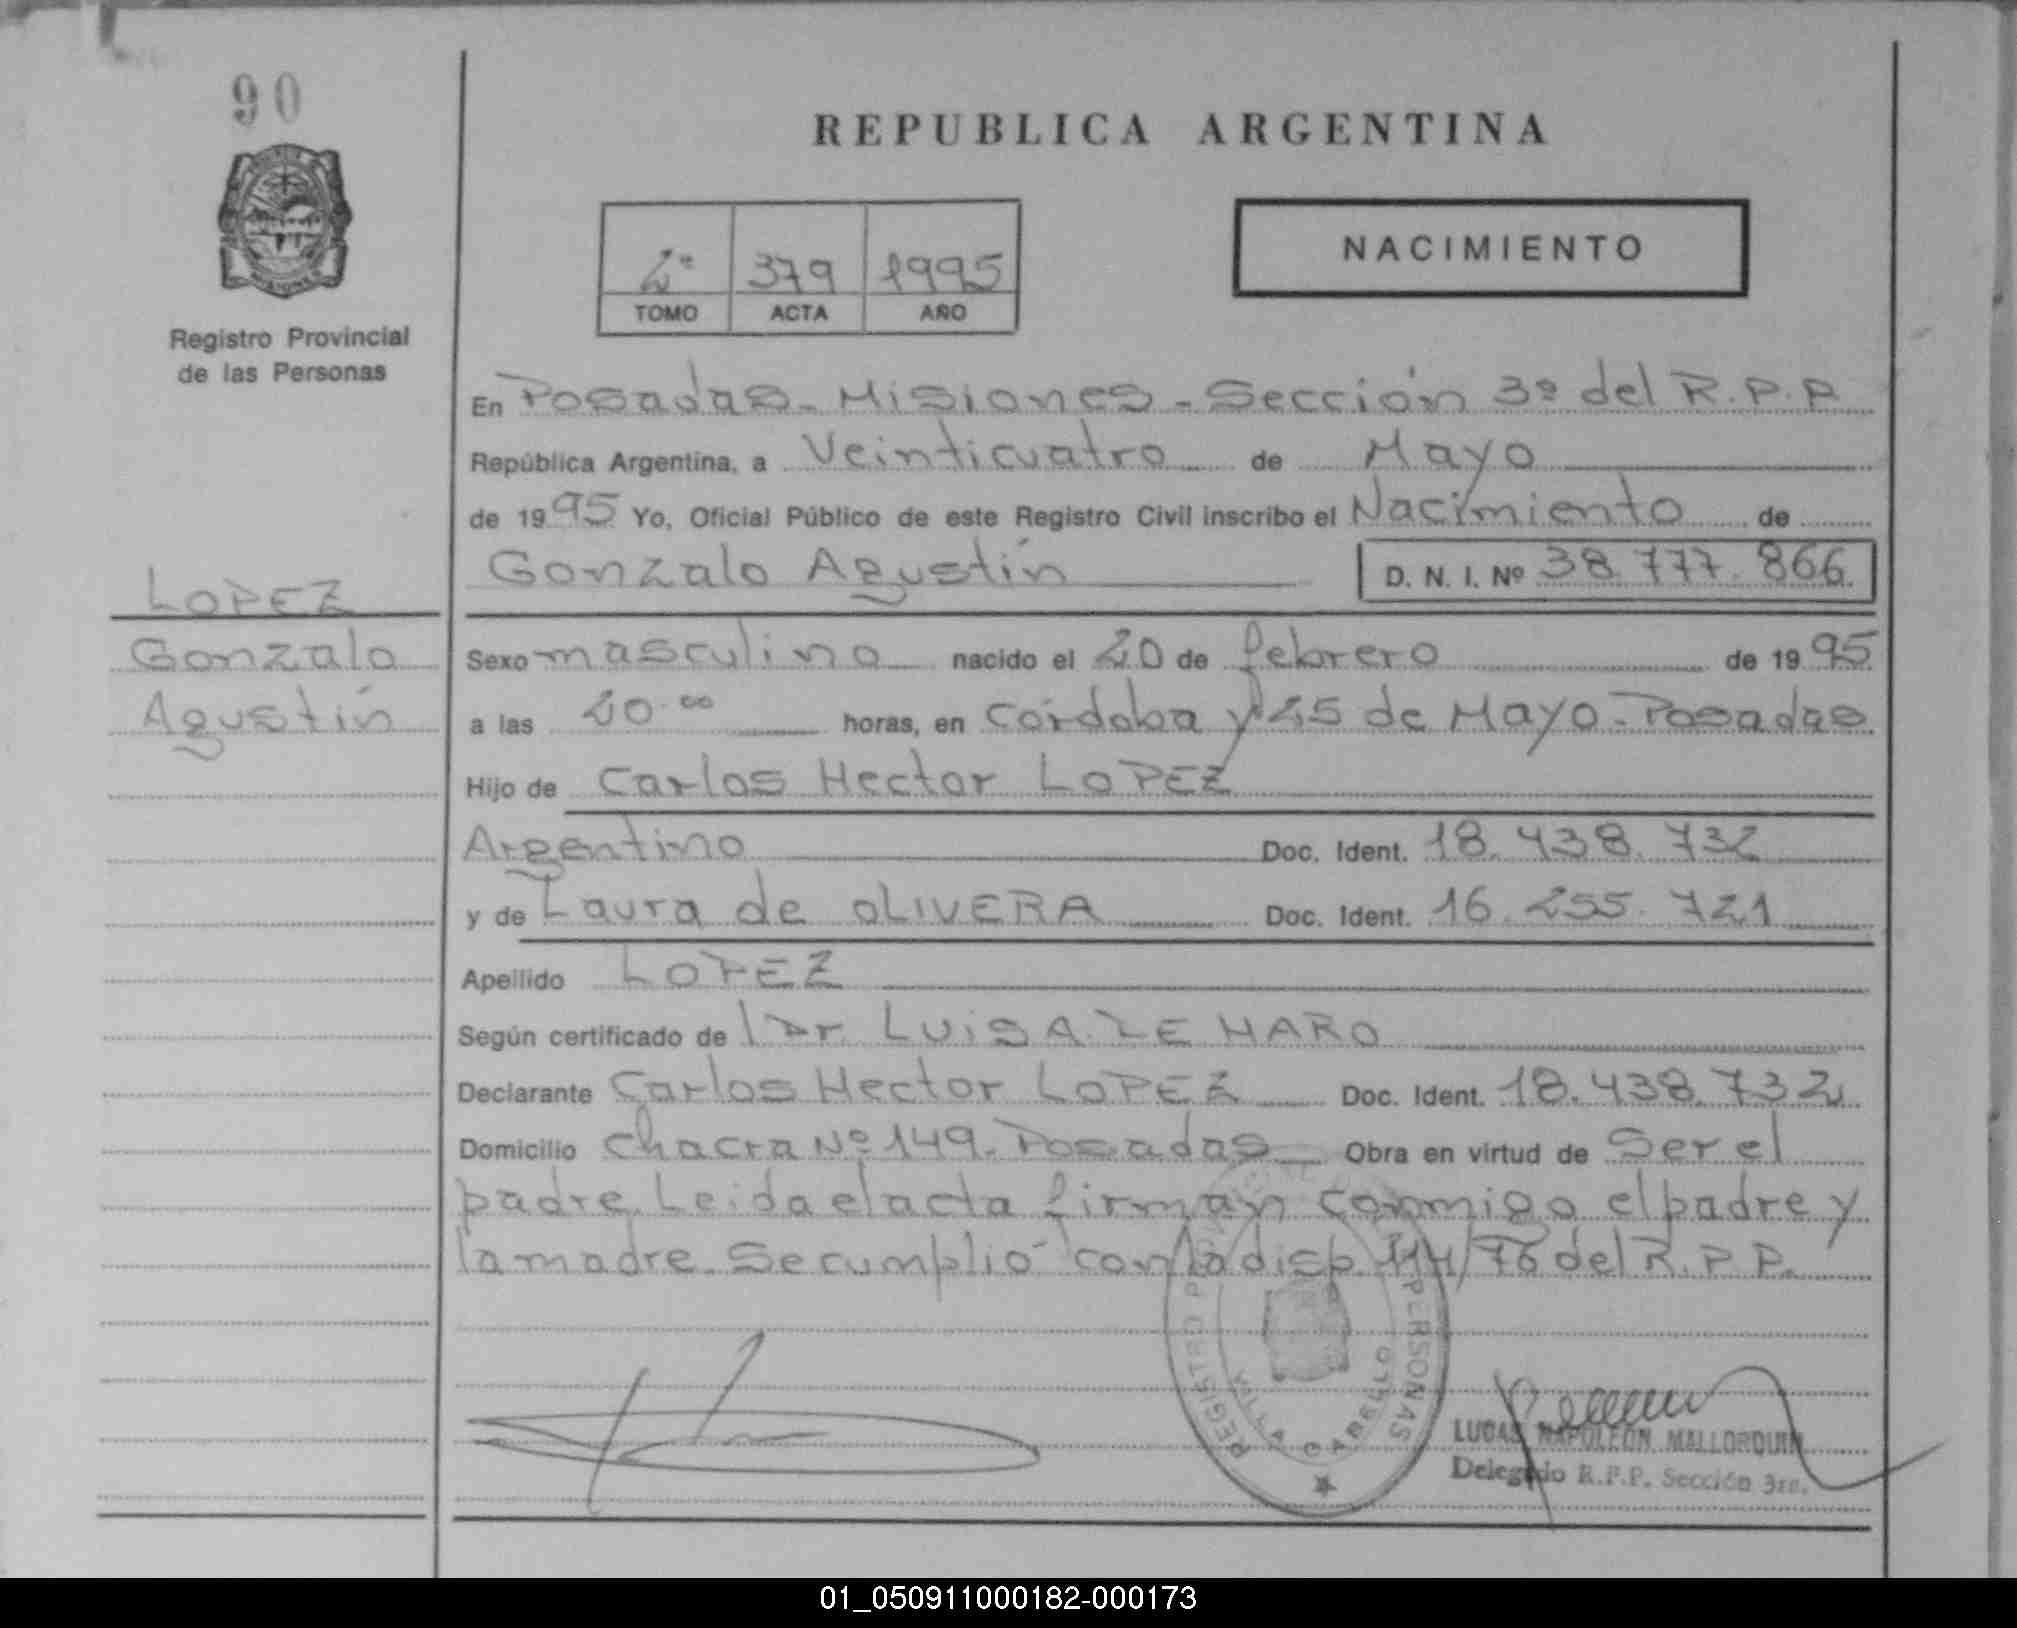 90
REPUBLICA ARGENTINA
2º 379 1995
TOMO ACTA AÑO
NACIMIENTO
Registro Provincial
de las Personas
En Posadas - Misiones - Sección 3º del R.P.P.
República Argentina, a Veinticuatro de Mayo
de 1995 Yo, Oficial Público de este Registro Civil inscribo el Nacimiento de
Gonzalo Agustín D. N. I. Nº 38.777.866
LOPEZ
Gonzalo
Agustín
Sexo masculino nacido el 20 de febrero de 1995
a las 20.00 horas, en Córdoba y 25 de Mayo - Posadas
Hijo de Carlos Hector LOPEZ
Argentino Doc. Ident. 18.438.732
y de Laura de OLIVERA Doc. Ident. 16.255.721
Apellido LOPEZ
Según certificado de l Dr. LUIS A. ZE HARO
Declarante Carlos Hector LOPEZ Doc. Ident. 18.438.732
Domicilio Chacra Nº 149. Posadas Obra en virtud de Ser el
padre. Leida el acta firman conmigo el padre y
la madre. Se cumplió con la disp. 114/76 del R.P.P.
REGISTRO P PERSONAS
VILLA CABELLO
LUCAS NAPOLEON MALLORQUIN
Delegado R.P.P. Sección 3ra.
01_050911000182-000173